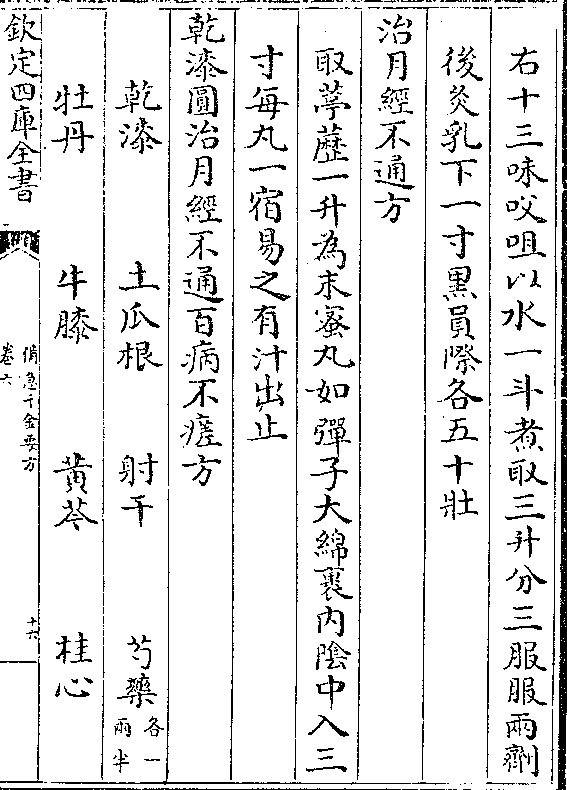 右十三味㕮咀以水一斗煮取三升分三服服兩劑
後灸乳下一寸黑員際各五十壯
治月經不通方
取葶藶一升為末蜜丸如彈子大綿裹内陰中入三
寸每丸一宿易之有汁出止
乾漆圓治月經不通百病不瘥方
乾漆 土瓜根 射干 芍藥各一兩半
牡丹 牛膝 黄芩 桂心
欽定四庫全書
備急千金要方
卷六
十六